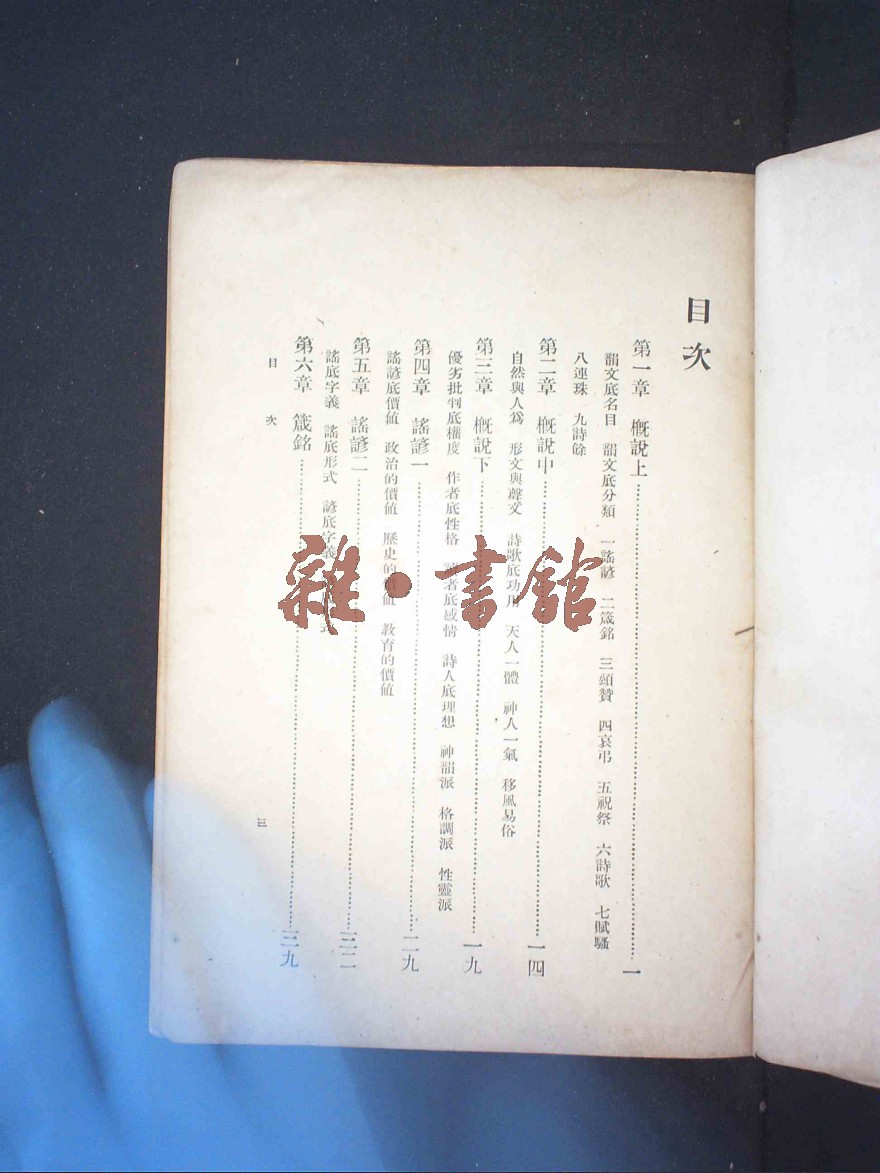 目次
第一章 概說上 一
韻文底名目 韻文底分類 一謠諺 二箴銘 三頌贊 四哀弔 五祝祭 六詩歌 七賦騷
八連珠 九詩餘
第二章 概說中 一四
自然與人爲 形文與聲文 詩歌底功用 天人一體 神人一氣 移風易俗
第三章 概說下 一九
優劣批判底權度 作者底性格 者底感情 詩人底理想 神韻派 格調派 性靈派
第四章 謠諺一 二九
謠諺底價値 政治的價値 歷史的價値 教育的價値
第五章 謠諺二 三二
謠底字義 謠底形式 諺底字義 式
第六章 箴銘 三九
目次
三
雜·書館